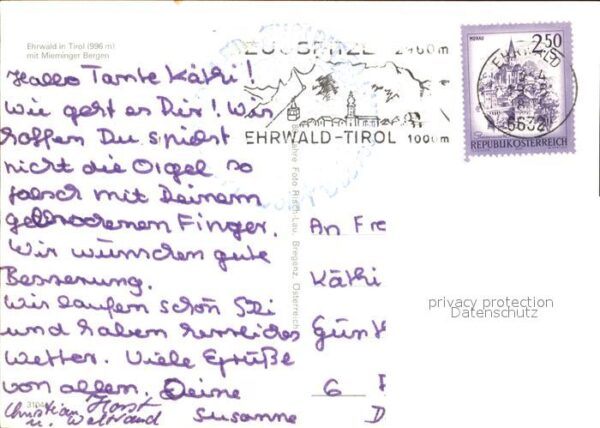 Ehrwald in Tirol (996 m)
mit Mieminger Bergen
ZUGSPITZE 2960m
EHRWALD-TIROL 1000m
EHRWALD
6632
MURAU
2.50
REPUBLIK ÖSTERREICH
Hallo Tante Käthi!
Wie geht es Dir! Wir
hoffen Du spielst
nicht die Orgel so
falsch mit Deinem
gebrochenen Finger.
Wir wünschen gute
Besserung.
Wir laufen schön Ski
und haben herrliches
Wetter. Viele Grüße
von allen. Deine
Susanne
Christian, Horst
u. Waltraud
Foto Risch-Lau, Bregenz, Österreich
An Fr
Käthi
Günt
6
D
privacy protection
Datenschutz